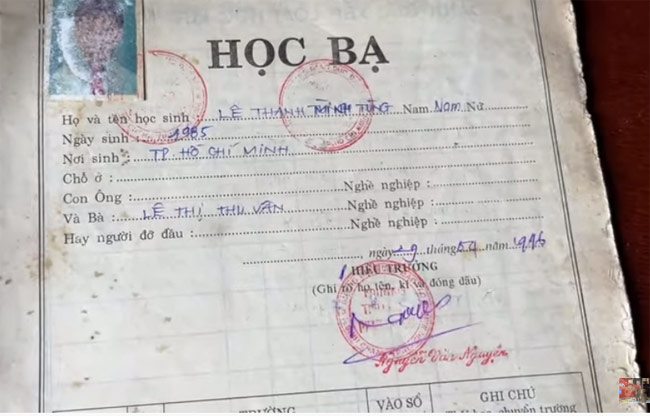 HỌC BẠ
Họ và tên học sinh : LÊ THANH MINH TÙNG Nam Nam Nữ
Ngày sinh : 1985
Nơi sinh : TP. HỒ CHÍ MINH
Chỗ ở :
Con Ông : Nghề nghiệp :
Và Bà : LÊ THỊ THU VÂN Nghề nghiệp :
Hay người đỡ đầu : Nghề nghiệp :
, ngày 9 tháng năm 1996
HIỆU TRƯỞNG
(Ghi rõ họ tên, kí và đóng dấu)
Nguyễn Văn Nguyện
TRƯỜNG
VÀO SỔ
GHI CHÚ
chuyển trường